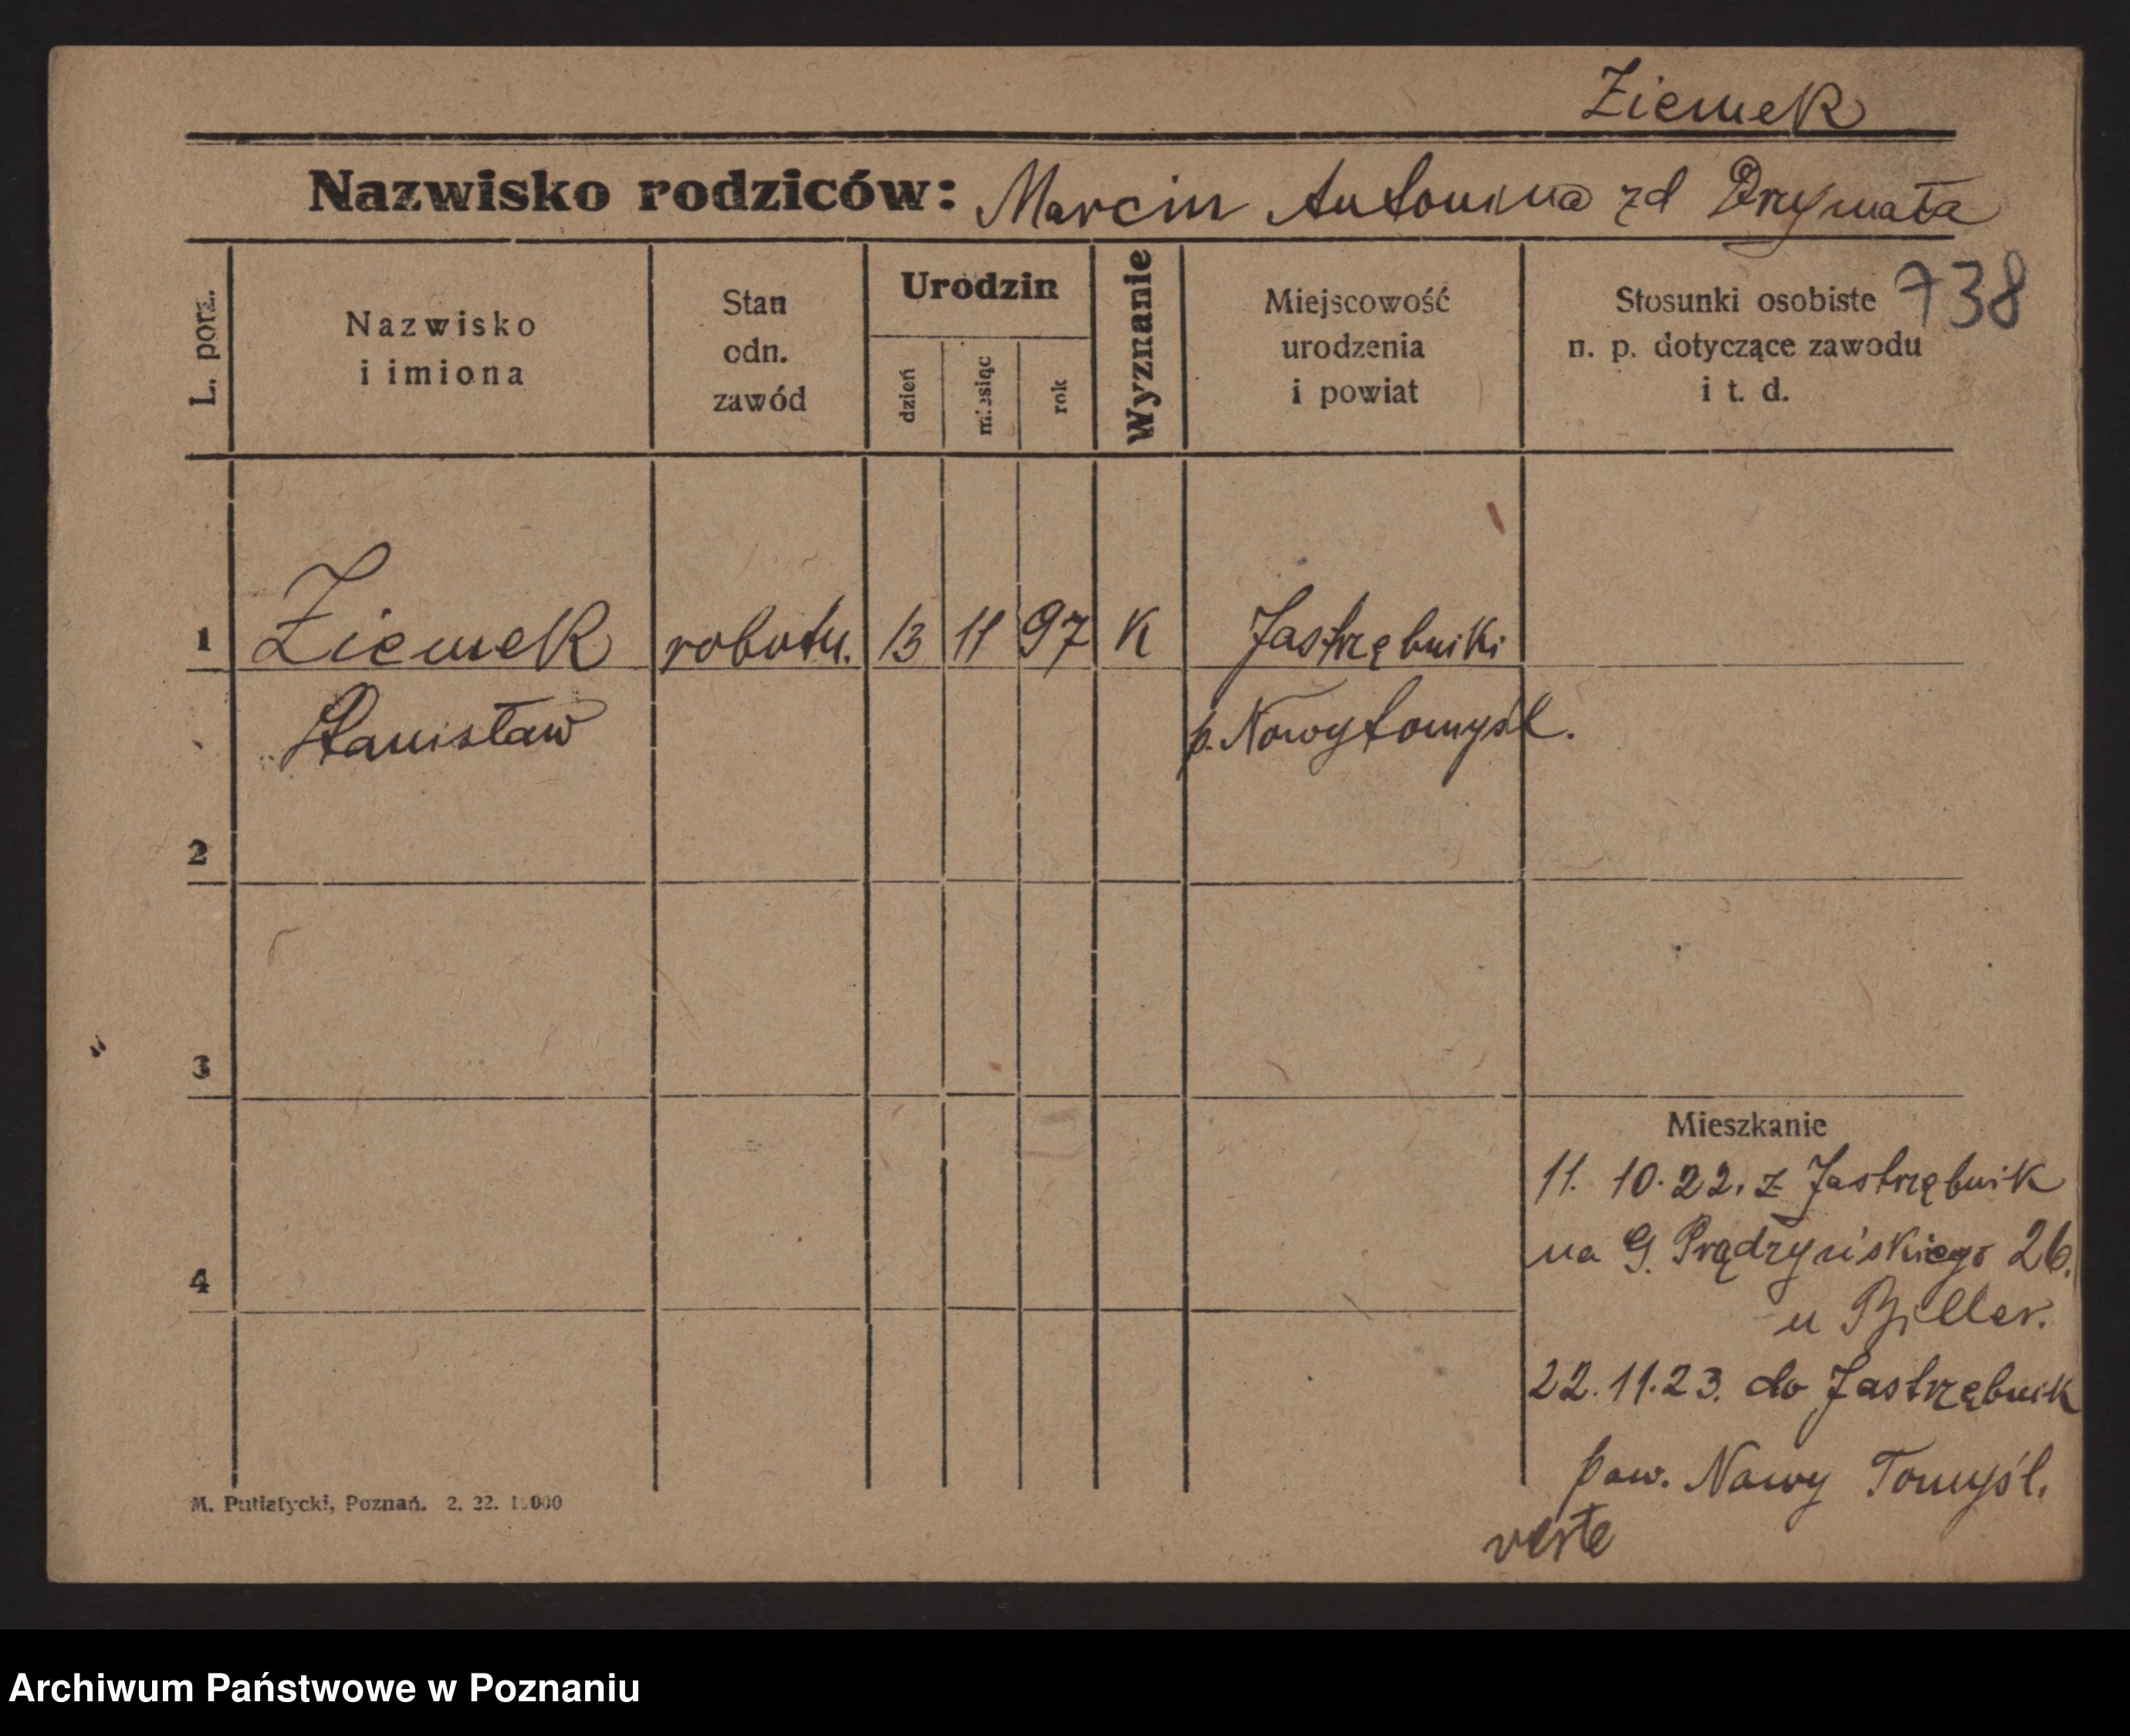 Ziemek
Nazwisko rodziców: Marcin Antonina zd Drzymała
738
L. porz.
Nazwisko
i imiona
Stan
odn.
zawód
Urodzin
dzień
miesiąc
rok
Wyznanie
Miejscowość
urodzenia
i powiat
Stosunki osobiste
n. p. dotyczące zawodu
i t. d.
1 Ziemek robotn. 13 11 97 K Jastrzębniki
Stanisław p. Nowytomyśl.
2
3
4
Mieszkanie
11. 10. 22. z Jastrzębnik
na G. Prądzyńskiego 26.
u Biller.
22. 11. 23. do Jastrzębnik
pow. Nowy Tomyśl.
M. Putiatycki, Poznań. 2. 22.
Archiwum Państwowe w Poznaniu